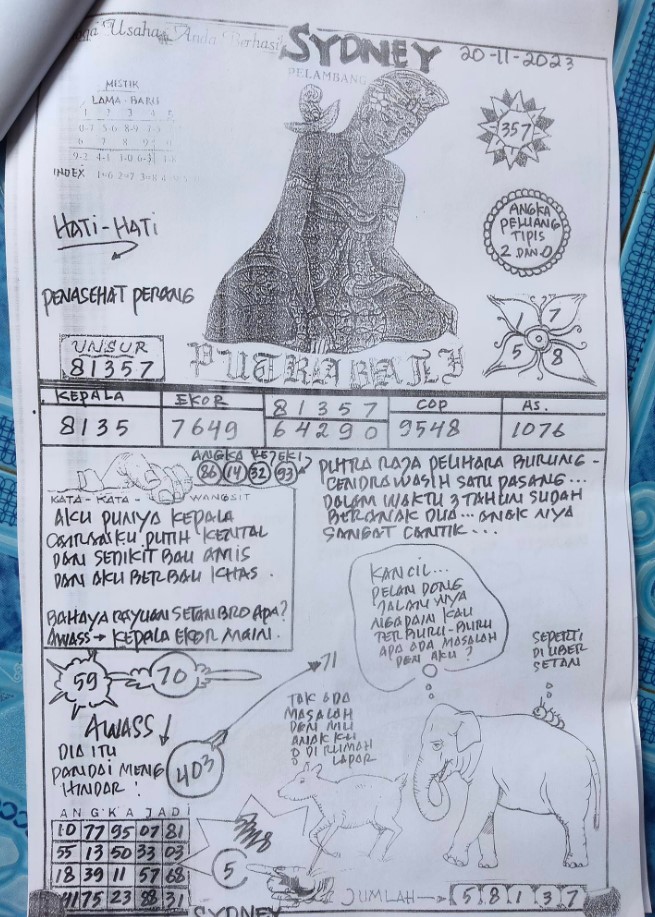 Usaha Anda Berhasil
SYDNEY
20-11-2023
PELAMBANG
MISTIK
LAMA - BARU
1 2 3 4 5
0-7 5-6 8-9
6 7 8 9
9-2 4-1 3-0 6-3
INDEX 1=6 2=7 3=8
357
HATI-HATI
ANGKA
PELUANG
TIPIS
2 DAN 0
PENASEHAT PERANG
1 7
5 8
UNSUR
81357
PUTRA BALI
KEPALA EKOR 81357 COP AS.
8135 7649 64290 9548 1076
ANGKA REJEKI
86 14 32 93
PUTRA RAJA PELIHARA BURUNG -
CENDRAWASIH SATU PASANG...
DALAM WAKTU 3 TAHUN SUDAH
BERANAK DUA... ANAK NYA
SANGAT CANTIK...
KATA - KATA - WANGSIT
AKU PUNYA KEPALA
CAIRANKU PUTIH KENTAL
DAN SEDIKIT BAU AMIS
DAN AKU BERBAU KHAS.
BAHAYA RAYUAN SETAN BRO APA?
AWASS → KEPALA EKOR MAIN.
KANCIL...
PELAN DONG
JALAN NYA
NGAPAIN KAU
TERBURU-BURU
APA ADA MASALAH
DEN AKU?
SEPERTI
DI UBER
SETAN
59 70
71
AWASS ↓
DIA ITU
PANDAI MENG
HINDAR!
403
TAK ADA
MASALAH
DEN MU
ANAK KU
DI RUMAH
LAPAR
ANGKA JADI
10 77 95 07 81
55 13 50 33 03
18 39 11 57 68
41 75 23 88 31
5
JUMLAH → 5 8 1 3 7
SYDNEY